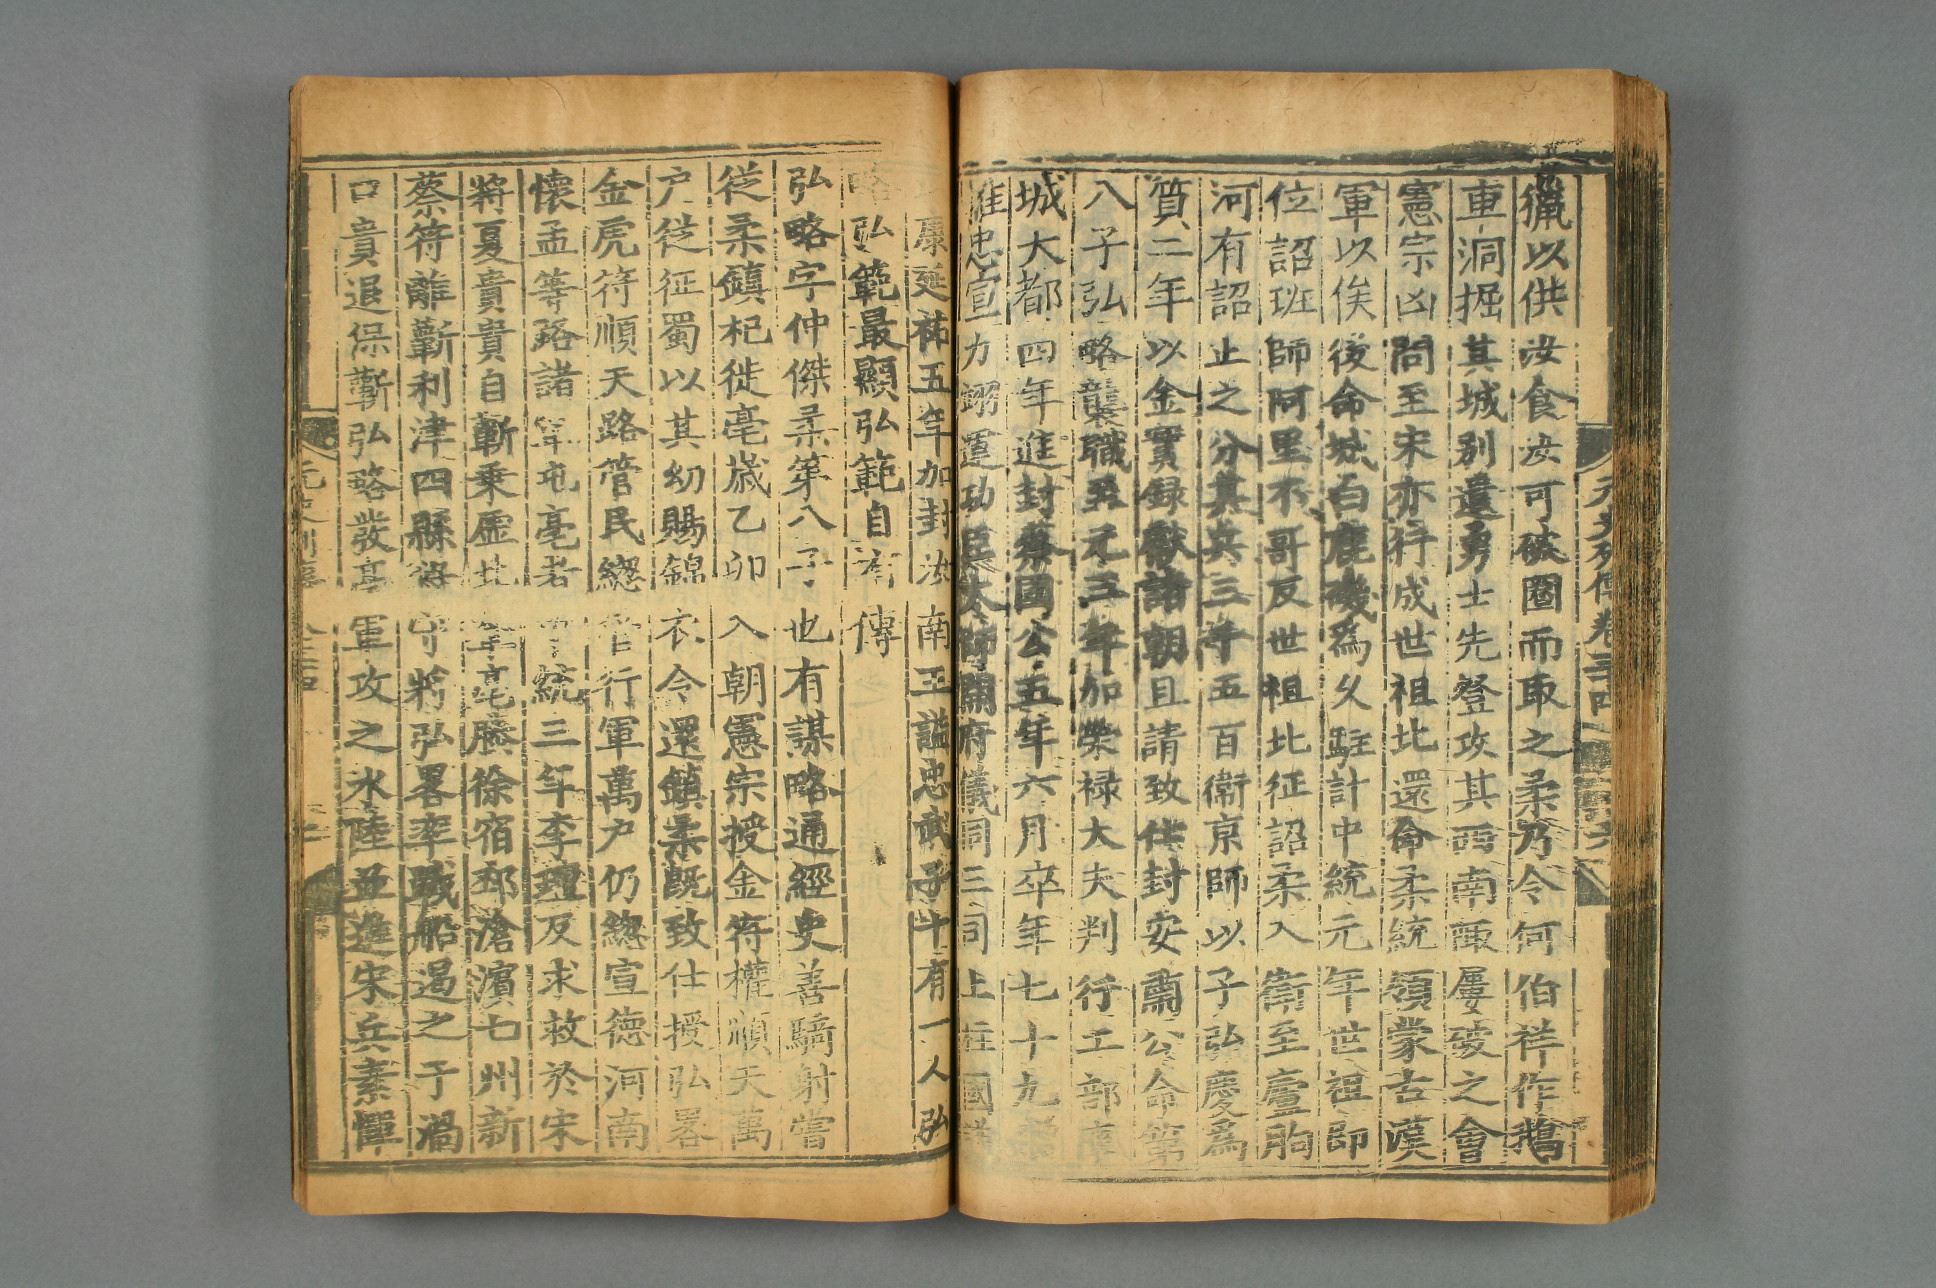 元史列傳卷三十四
獵以供汝食汝可破圈而取之柔乃令何伯祥作鵝
車洞掘其城別遣勇士先登攻其西南陬屢破之會
憲宗凶問至宋亦行成世祖北還命柔統領蒙古漢
軍以俟後命城白鹿磯為久駐計中統元年世祖即
位詔班師阿里不哥反世祖北征詔柔入衛至廬朐
河有詔止之分其兵三千五百衛京師以子弘慶為
質二年以金實録獻諸朝且請致仕封安肅公命第
八子弘略襲職至元三年加榮禄大夫判行工部事
城大都四年進封蔡國公五年六月卒年七十九贈
推忠宣力翊運功臣太師開府儀同三司上柱國謚
康延祐五年加封汝南王謚忠武子十有一人弘
略弘範最顯弘範自有傳
弘略字仲傑柔第八子也有謀略通經史善騎射嘗
從柔鎮杞徙亳歲乙卯入朝憲宗授金符權順天萬
户從征蜀以其幼賜錦衣令還鎮柔既致仕授弘畧
金虎符順天路管民總管行軍萬户仍總宣德河南
懷孟等路諸軍屯亳者中統三年李璮反求救於宋
將夏貴貴自蘄乗虛北奪亳滕徐宿邳滄濱七州新
蔡符離蘄利津四縣殺守將弘畧率戰船遏之于渦
口貴退保蘄弘略發亳軍攻之水陸並進宋兵素憚